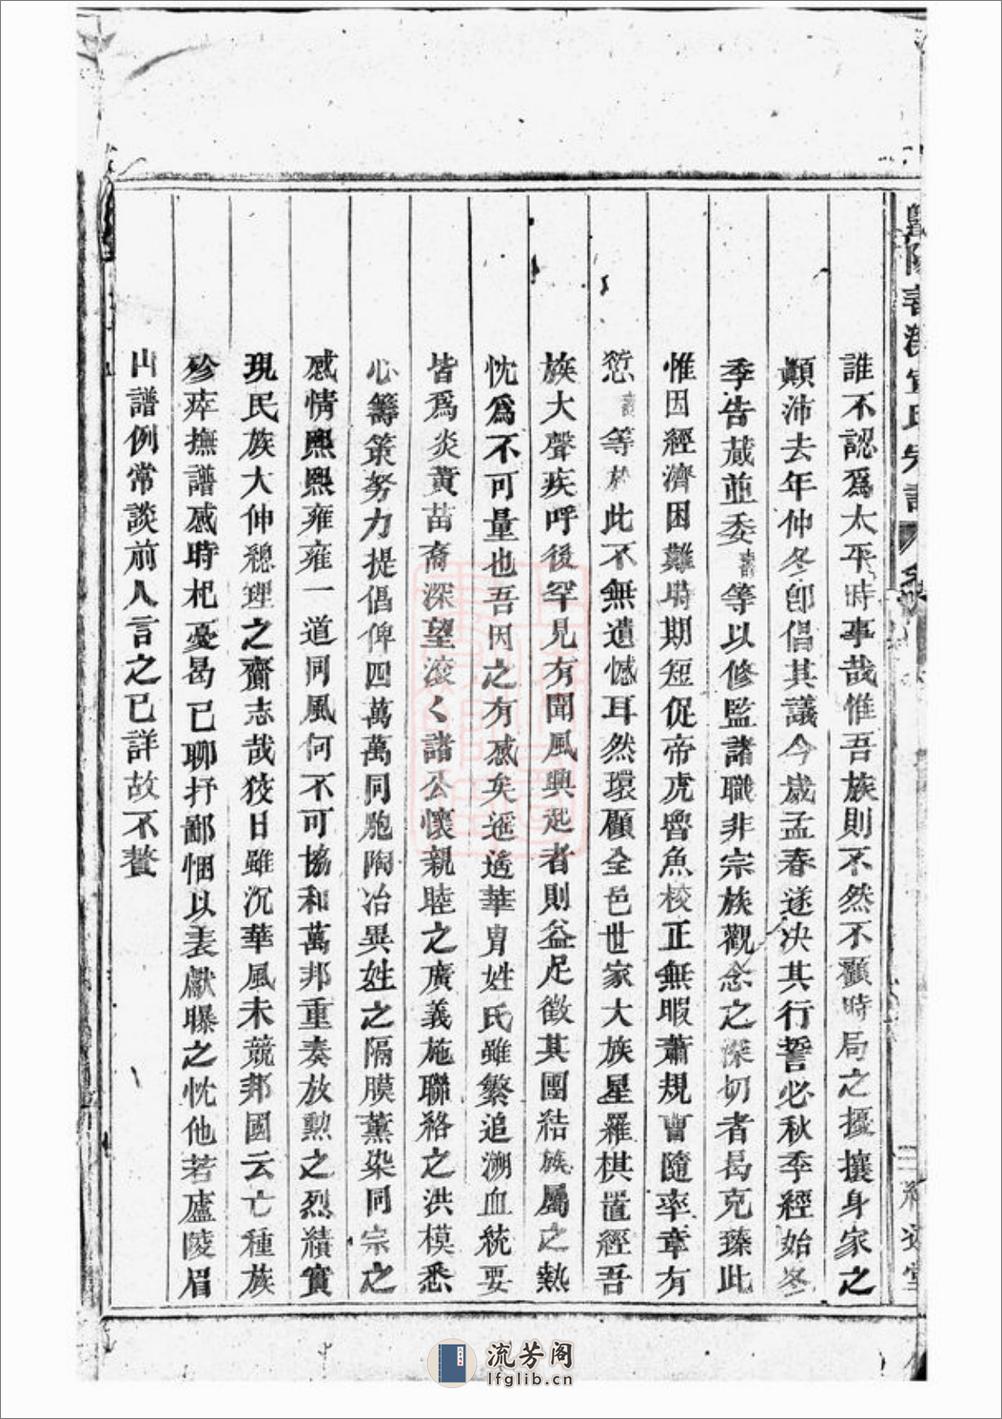 誰不認爲太平時事哉惟吾族則不然不顧時局之擾攘身家之
顚沛去年仲冬卽倡其議今歲孟春遂决其行誓必秋季經始冬
季告蕆並委等以修監諸職非宗族觀念之深切者曷克臻此
惟因經濟困難時期短促帝虎魯魚校正無暇蕭規曹隨率章有
愆等於此不無遺憾耳然環顧全邑世家大族星羅棋置經吾
族大聲疾呼後罕見有聞風興起者則益足徵其團結族屬之熱
忱爲不可量也吾因之有感矣遥遥華胄姓氏雖繁追溯血統要
皆爲炎黃苗裔深望滾く諸公懷親睦之廣義施聯絡之洪模悉
心籌策努力提倡俾四萬萬同胞陶冶異姓之隔膜薰染同宗之
感情熙熙雍雍一道同風何不可協和萬邦重奏放勲之烈績實
現民族大仲總理之齎志哉矧日雖沉華風未競邦國云亡種族
殄瘁撫譜感時杞憂曷已聊抒鄙悃以表獻曝之忱他若廬陵眉
山譜例常談前人言之已詳故不贅
氏宗譜
流芳阁
lfglib.cn